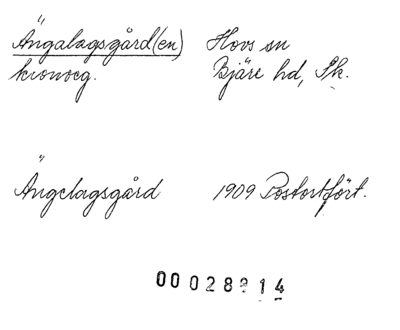 Ängalagsgård(en) Hovs sn
kronoeg. Bjäre hd, Sk.
Ängelagsgård 1909 Postortfört.